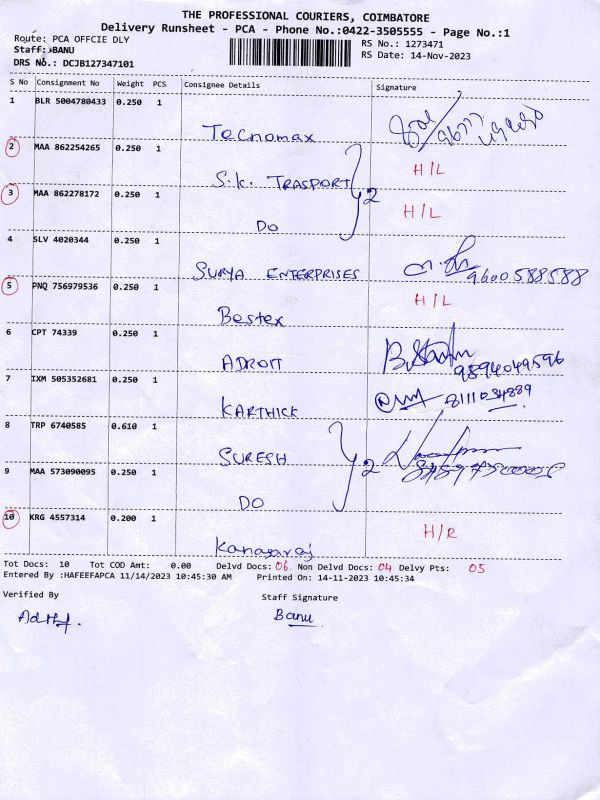 THE PROFESSIONAL COURIERS, COIMBATORE
Delivery Runsheet - PCA - Phone No.:0422-3505555 - Page No.:1
Route: PCA OFFCIE DLY
RS No.: 1273471
Staff:>BANU
RS Date: 14-Nov-2023
DRS No.: DCJB127347101
S No Consignment No Weight PCS Consignee Details Signature
1 BLR 5004780433 0.250 1
Tecnomax
2 MAA 862254265 0.250 1
S.K. TRASPORT H/L
3 MAA 862278172 0.250 1
DO H/L
y2
4 SLV 4020344 0.250 1
SURYA ENTERPRISES 9600588588
5 PNQ 756979536 0.250 1
Bestex H/L
6 CPT 74339 0.250 1
ADROIT 9894049596
7 IXM 505352681 0.250 1
KARTHICK 8111034889
8 TRP 6740585 0.610 1
SURESH
9 MAA 573090095 0.250 1
DO
y2
10 KRG 4557314 0.200 1
Kanagaraj H/R
Tot Docs: 10 Tot COD Amt: 0.00 Delvd Docs: 06. Non Delvd Docs: 04 Delvy Pts: 05
Entered By :HAFEEFAPCA 11/14/2023 10:45:30 AM Printed On: 14-11-2023 10:45:34
Verified By Staff Signature
Banu